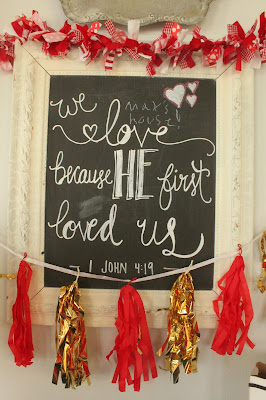 we
max's
house!
love
because HE first
loved us
1 JOHN 4:19